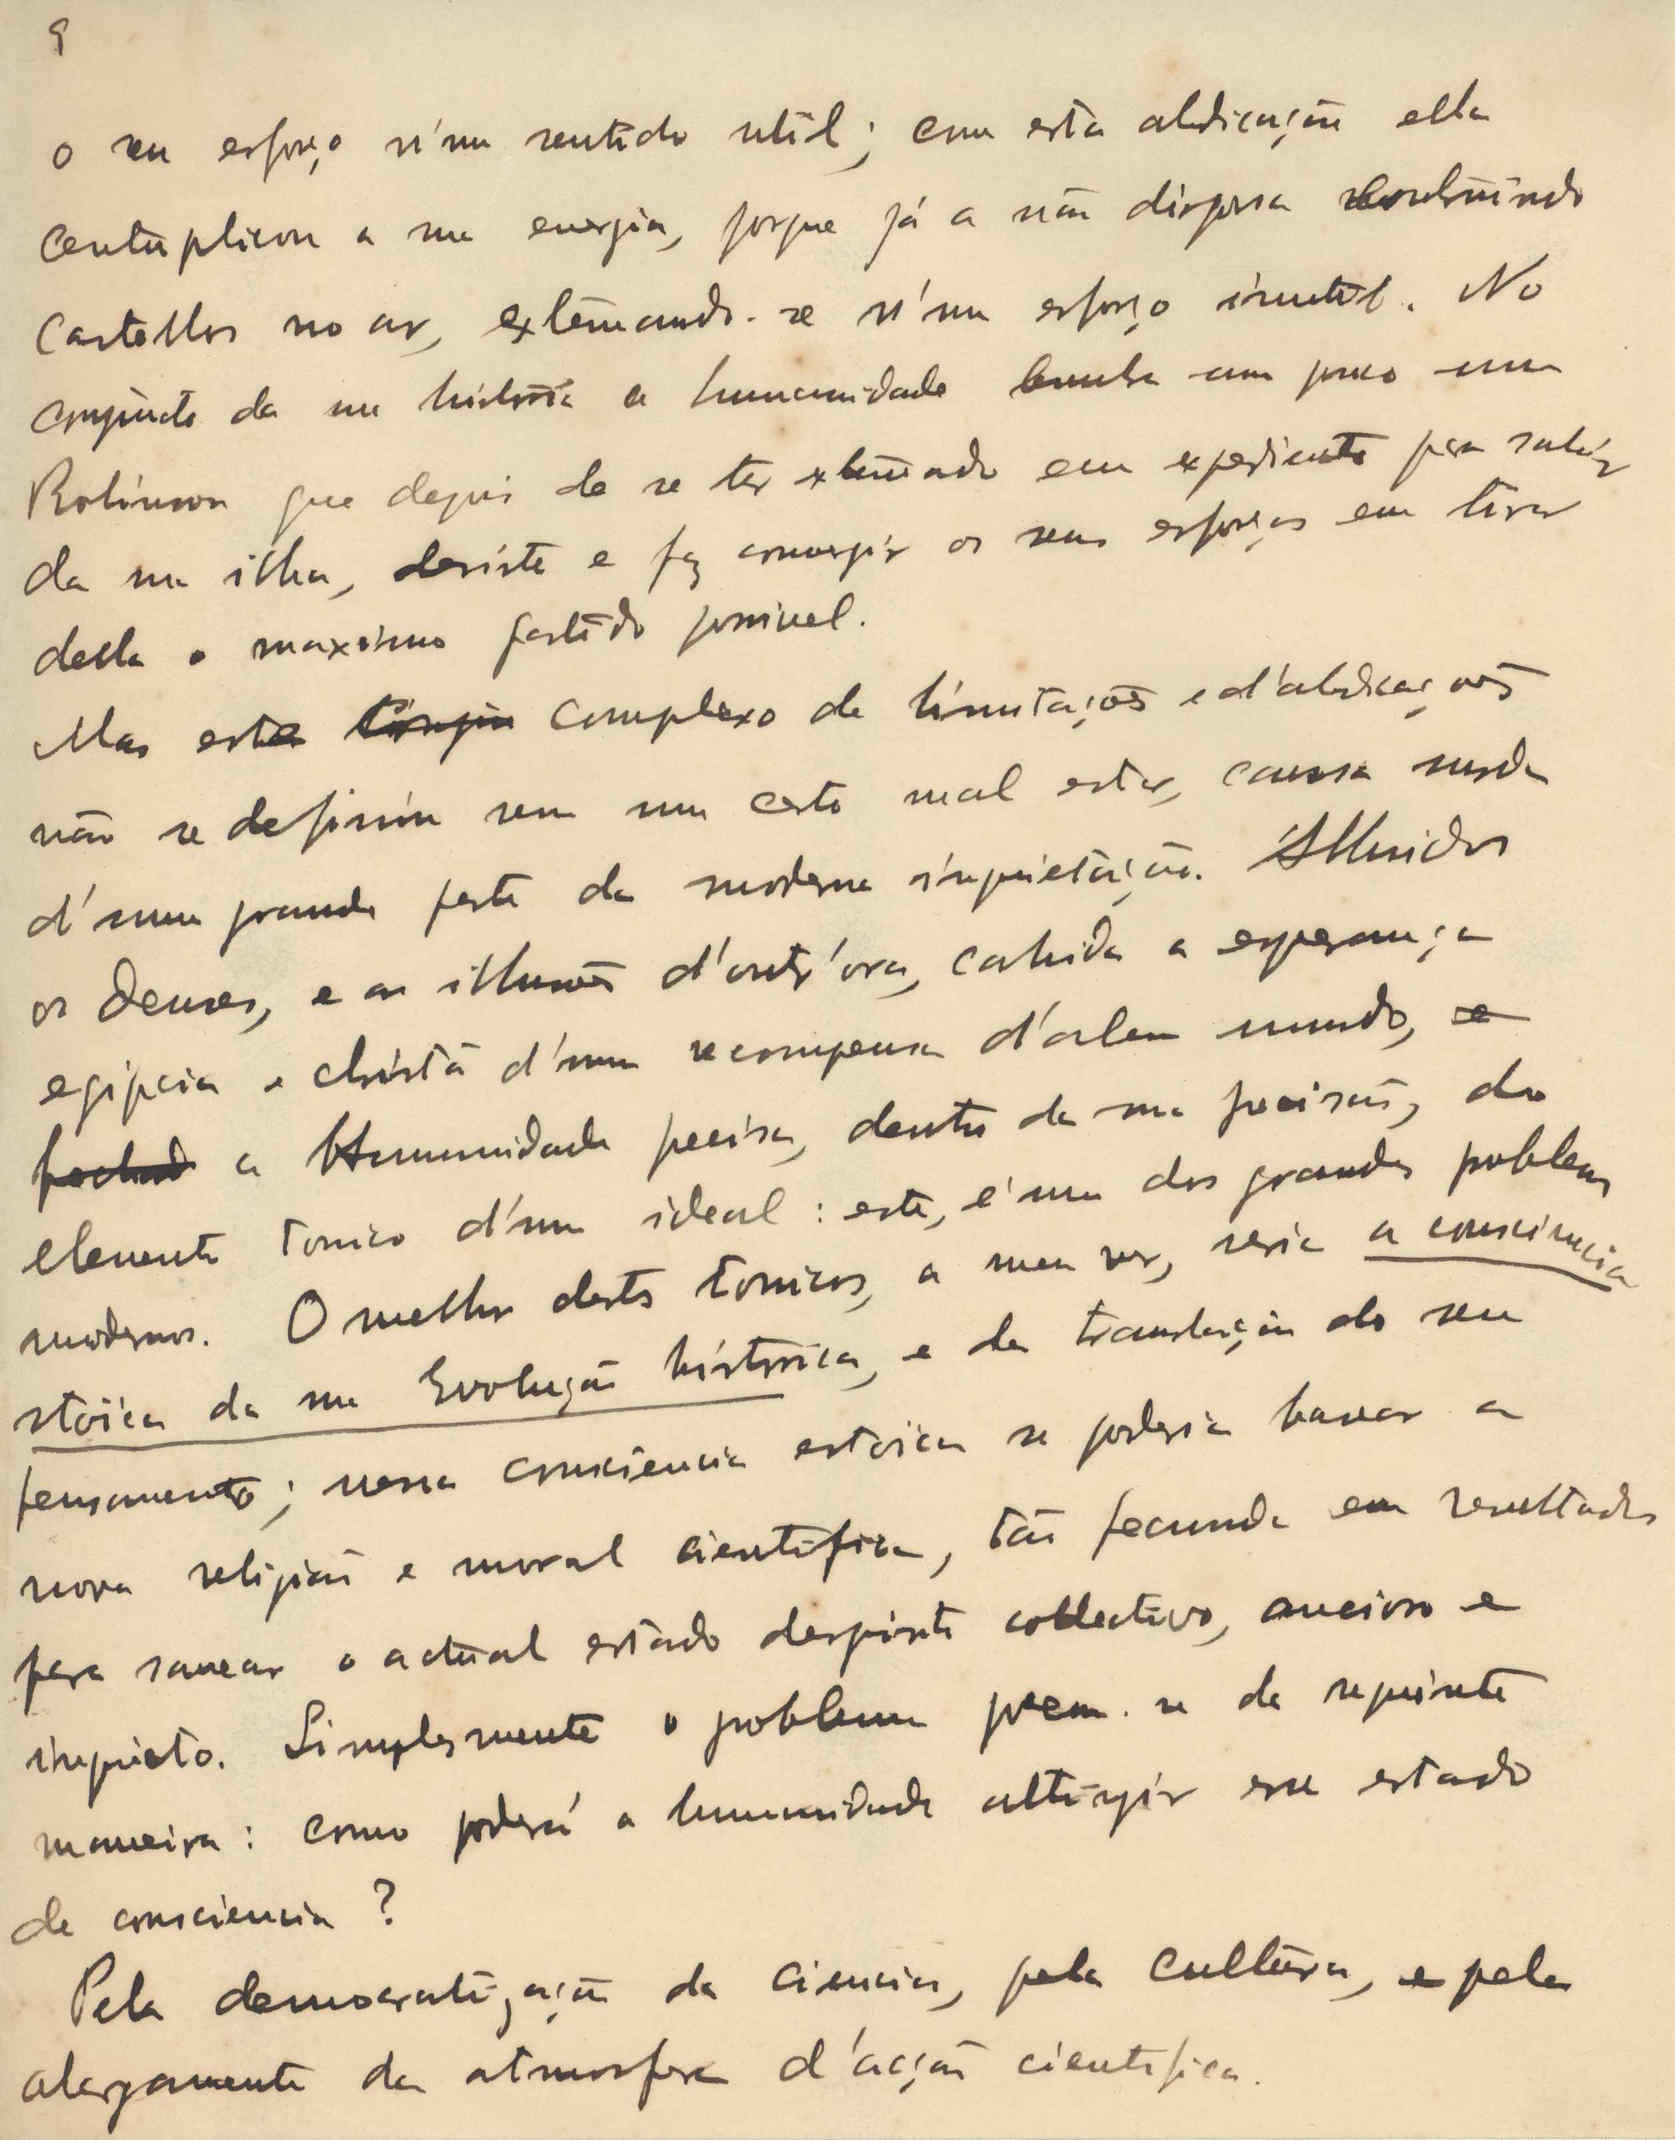 9
o seu esforço n'um sentido util; com esta abdicação ella
centuplicou a sua energia, porque já a não dispersa construindo
castellos no ar, extenuando-se n'um esforço inutil. No
conjuncto da sua historia a humanidade lembra um pouco um
Robinson que depois de se ter extenuado em expedientes para sahir
da sua ilha, desiste e faz convergir os seus esforços em tirar
della o maximo partido possivel.
Mas este complexo de limitações e d'abdicações
não se definiu sem um certo mal estar, causa surda
d'uma grande parte da moderna inquietação. Alluidos
os deuses, e as illusões d'outr'ora, cahida a esperança
egipcia e christã d'uma recompensa d'alem mundo, e
fechado a Humanidade precisa, dentro da sua prisão, do
elemento tonico d'um ideal: este, é um dos grandes problemas
modernos. O melhor destes tonicos, a meu ver, seria a consciencia
stoica da sua Evolução historica, e da translação do seu
pensamento; nessa consciencia estoica se poderia basear a
nova religião e moral cientifica, tão fecunda em resultados
para sanear o actual estado despirito collectivo, ancioso e
inquieto. Simplesmente o problema põem-se da seguinte
maneira: como poderá a humanidade attingir esse estado
de consciencia?
Pela democratização da ciencia, pela cultura, e pelo
alargamento da atmosfera d'acção cientifica.